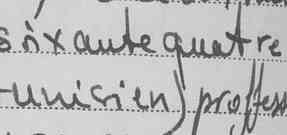 soixante quatre
tunisien, profess